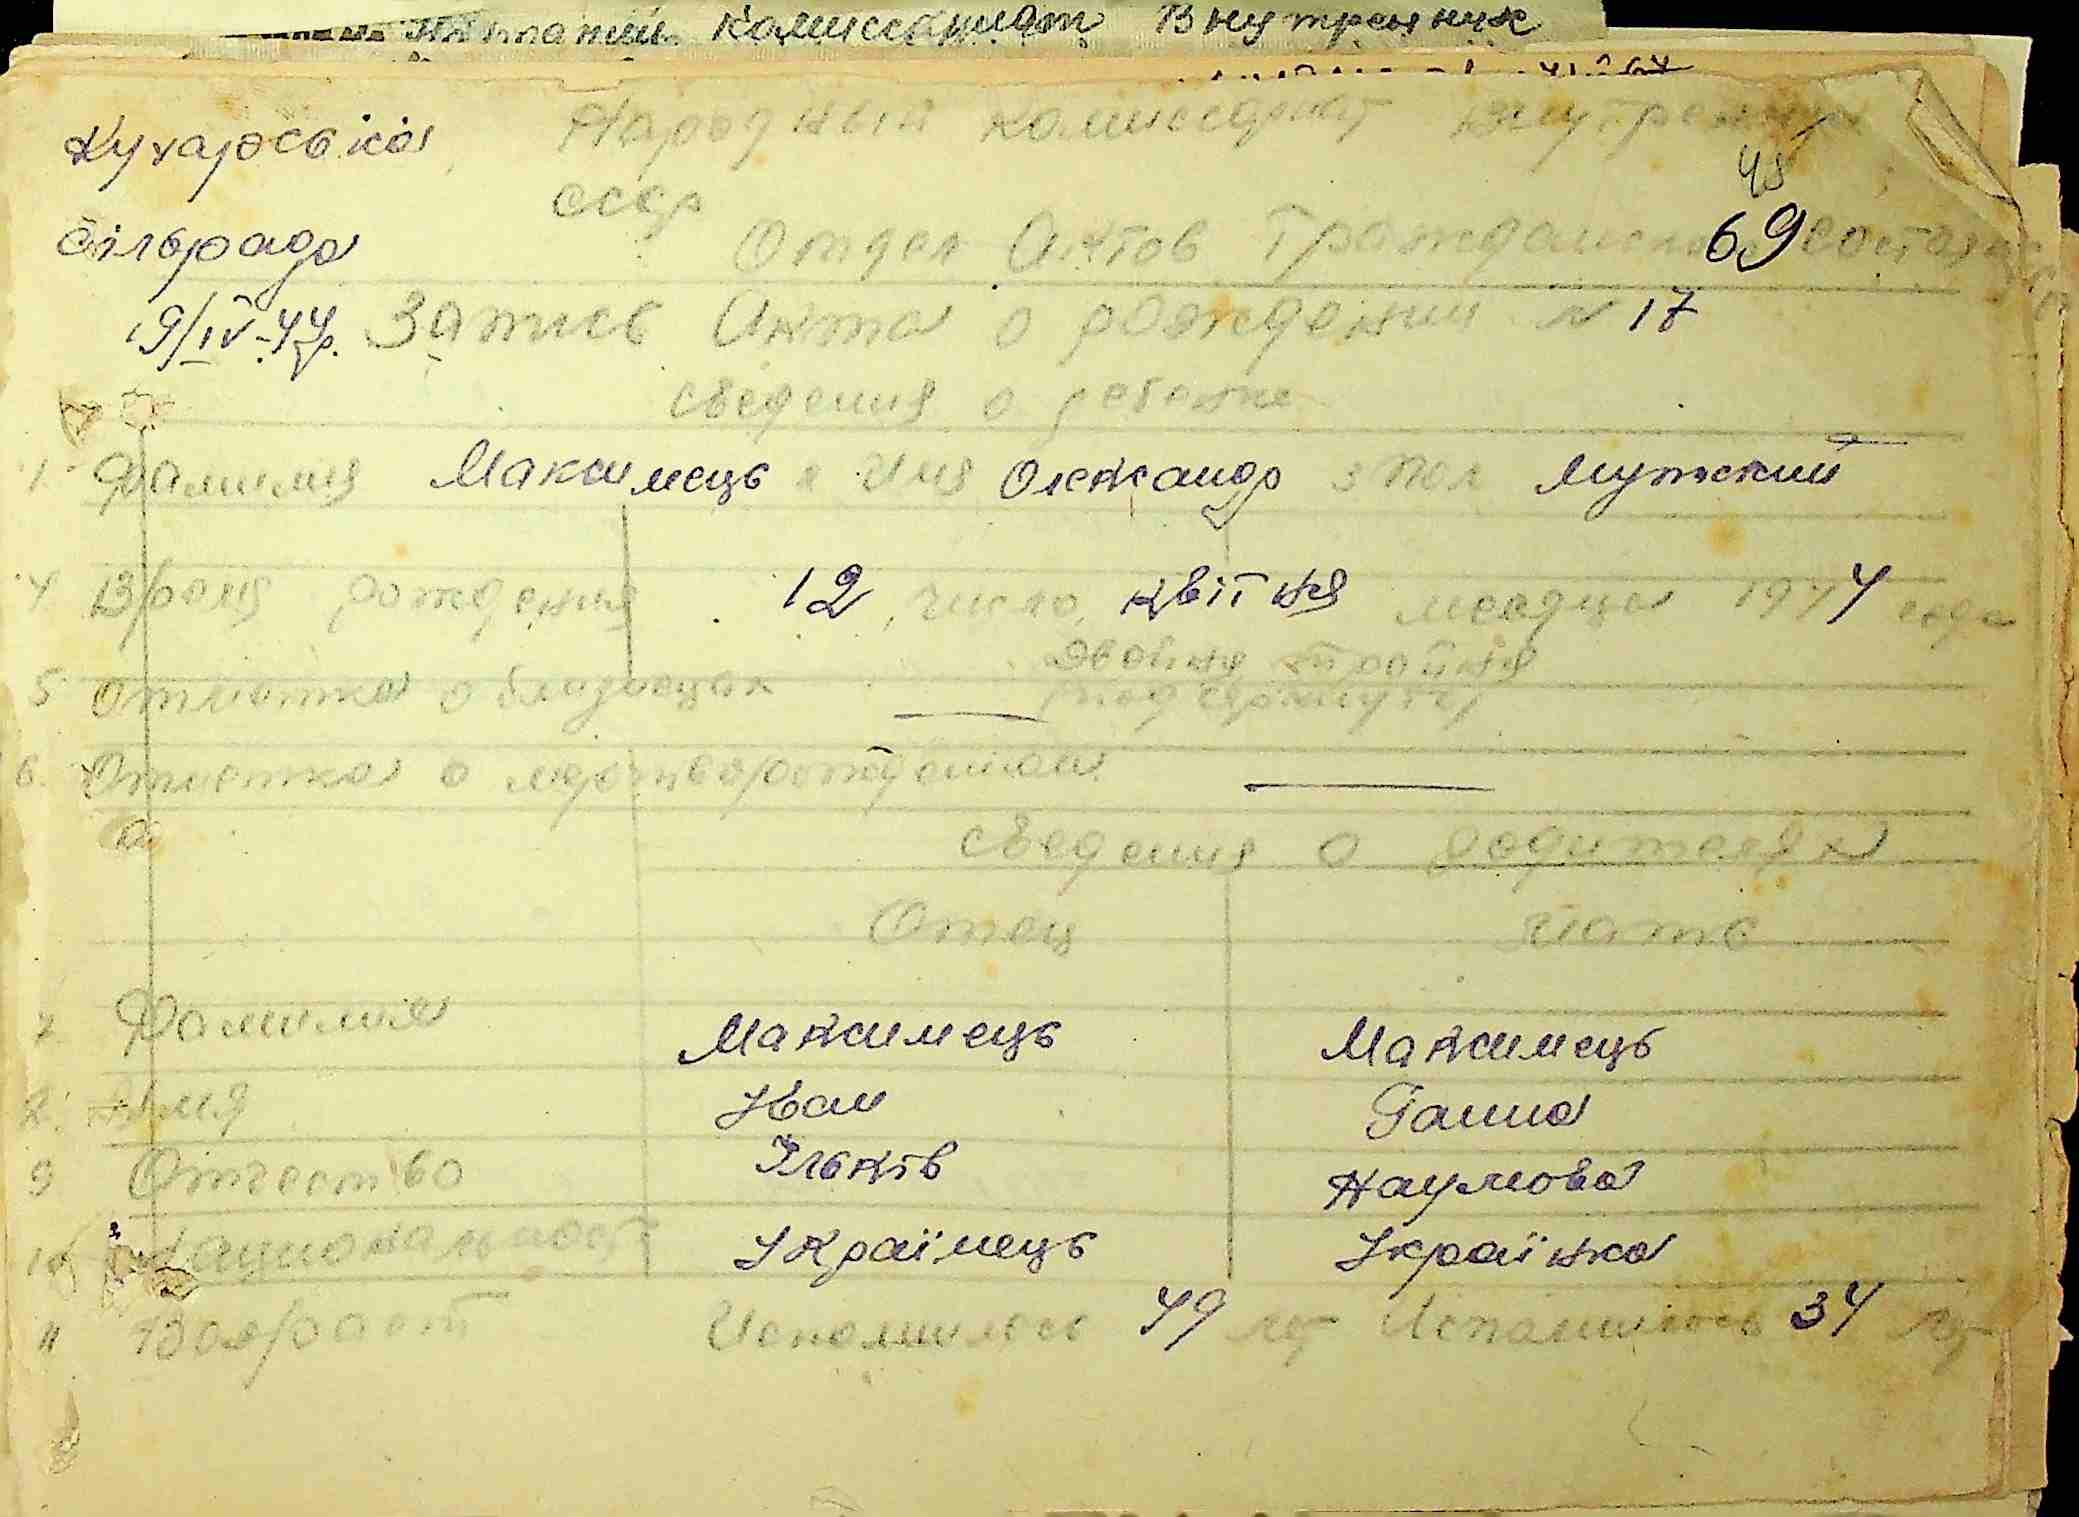 Комиссариат Внутренних
Кухарська Народный комиссариат Внутренних
48
ссср
сільрада Отдел Актов Гражданского 69 состояния
19/IV-44р. Запись Акта о рождении N 17
сведения о ребенке
1. Фамилия Максимець 2 Имя Олександр 3 Пол Мужский
4 Время рождения 12 число квітня месяца 1944 года
двойня тройня
5 Отметка о близнецах — (подчеркнуть)
6. Отметка о мертворождении —
сведения о родителях
Отец мать
7. Фамилия Максимець Максимець
8. Имя Іван Ганна
9 Отчество Ільків Наумова
10 Национальност Українець Українка
11 Возраст Исполнилось 49 лет Исполнилось 34 лет